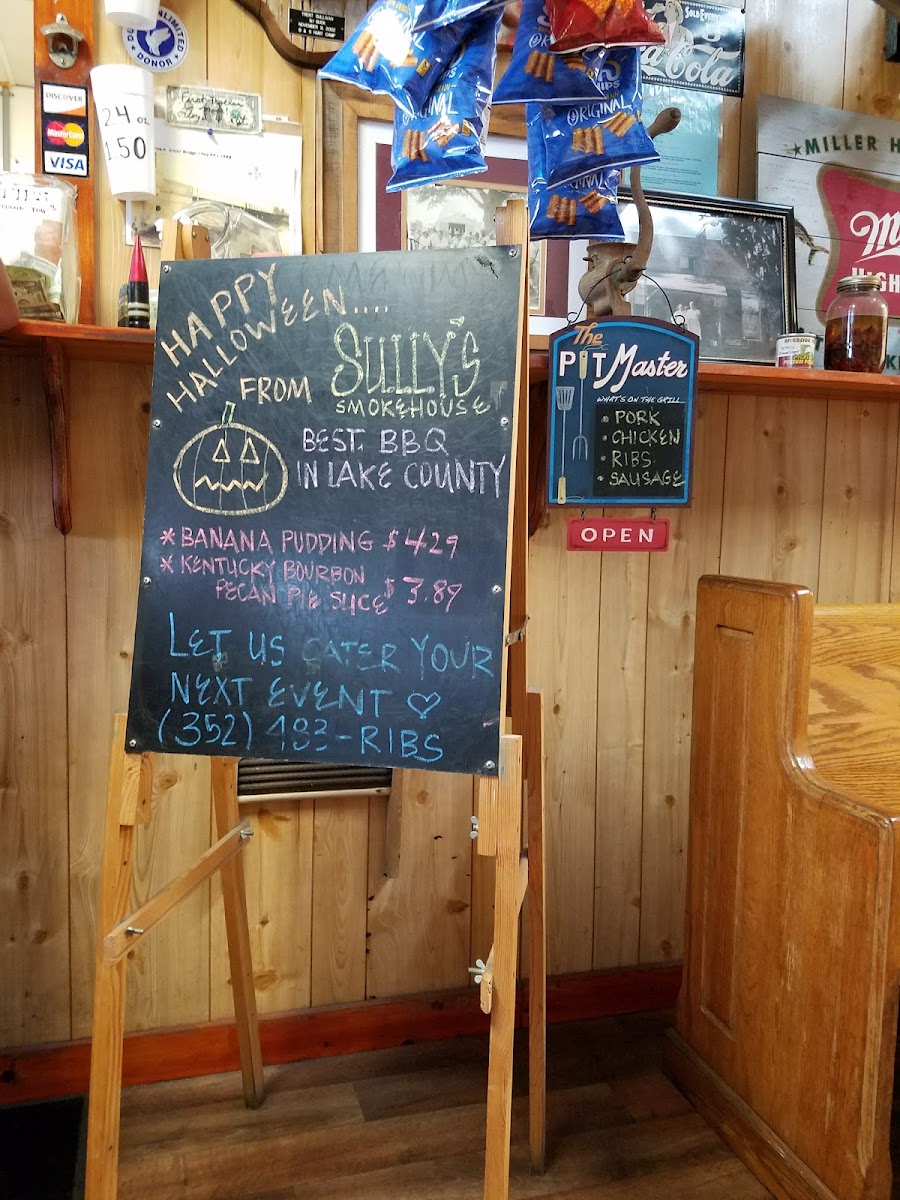 HAPPY
HALLOWEEN....
FROM SULLY'S
SMOKEHOUSE
BEST BBQ
IN LAKE COUNTY
* BANANA PUDDING $4.29
* KENTUCKY BOURBON
PECAN PIE SLICE $3.89
LET US CATER YOUR
NEXT EVENT ♡
(352) 483-RIBS
The
PIT Master
WHAT'S ON THE GRILL
• PORK
• CHICKEN
• RIBS
• SAUSAGE
OPEN
DISCOVER
MasterCard
VISA
24 oz
1.50
UNLIMITED
DONOR
ORIGINAL
ORIGINAL
ORIGINAL
Coca-Cola
MILLER H
HIGH